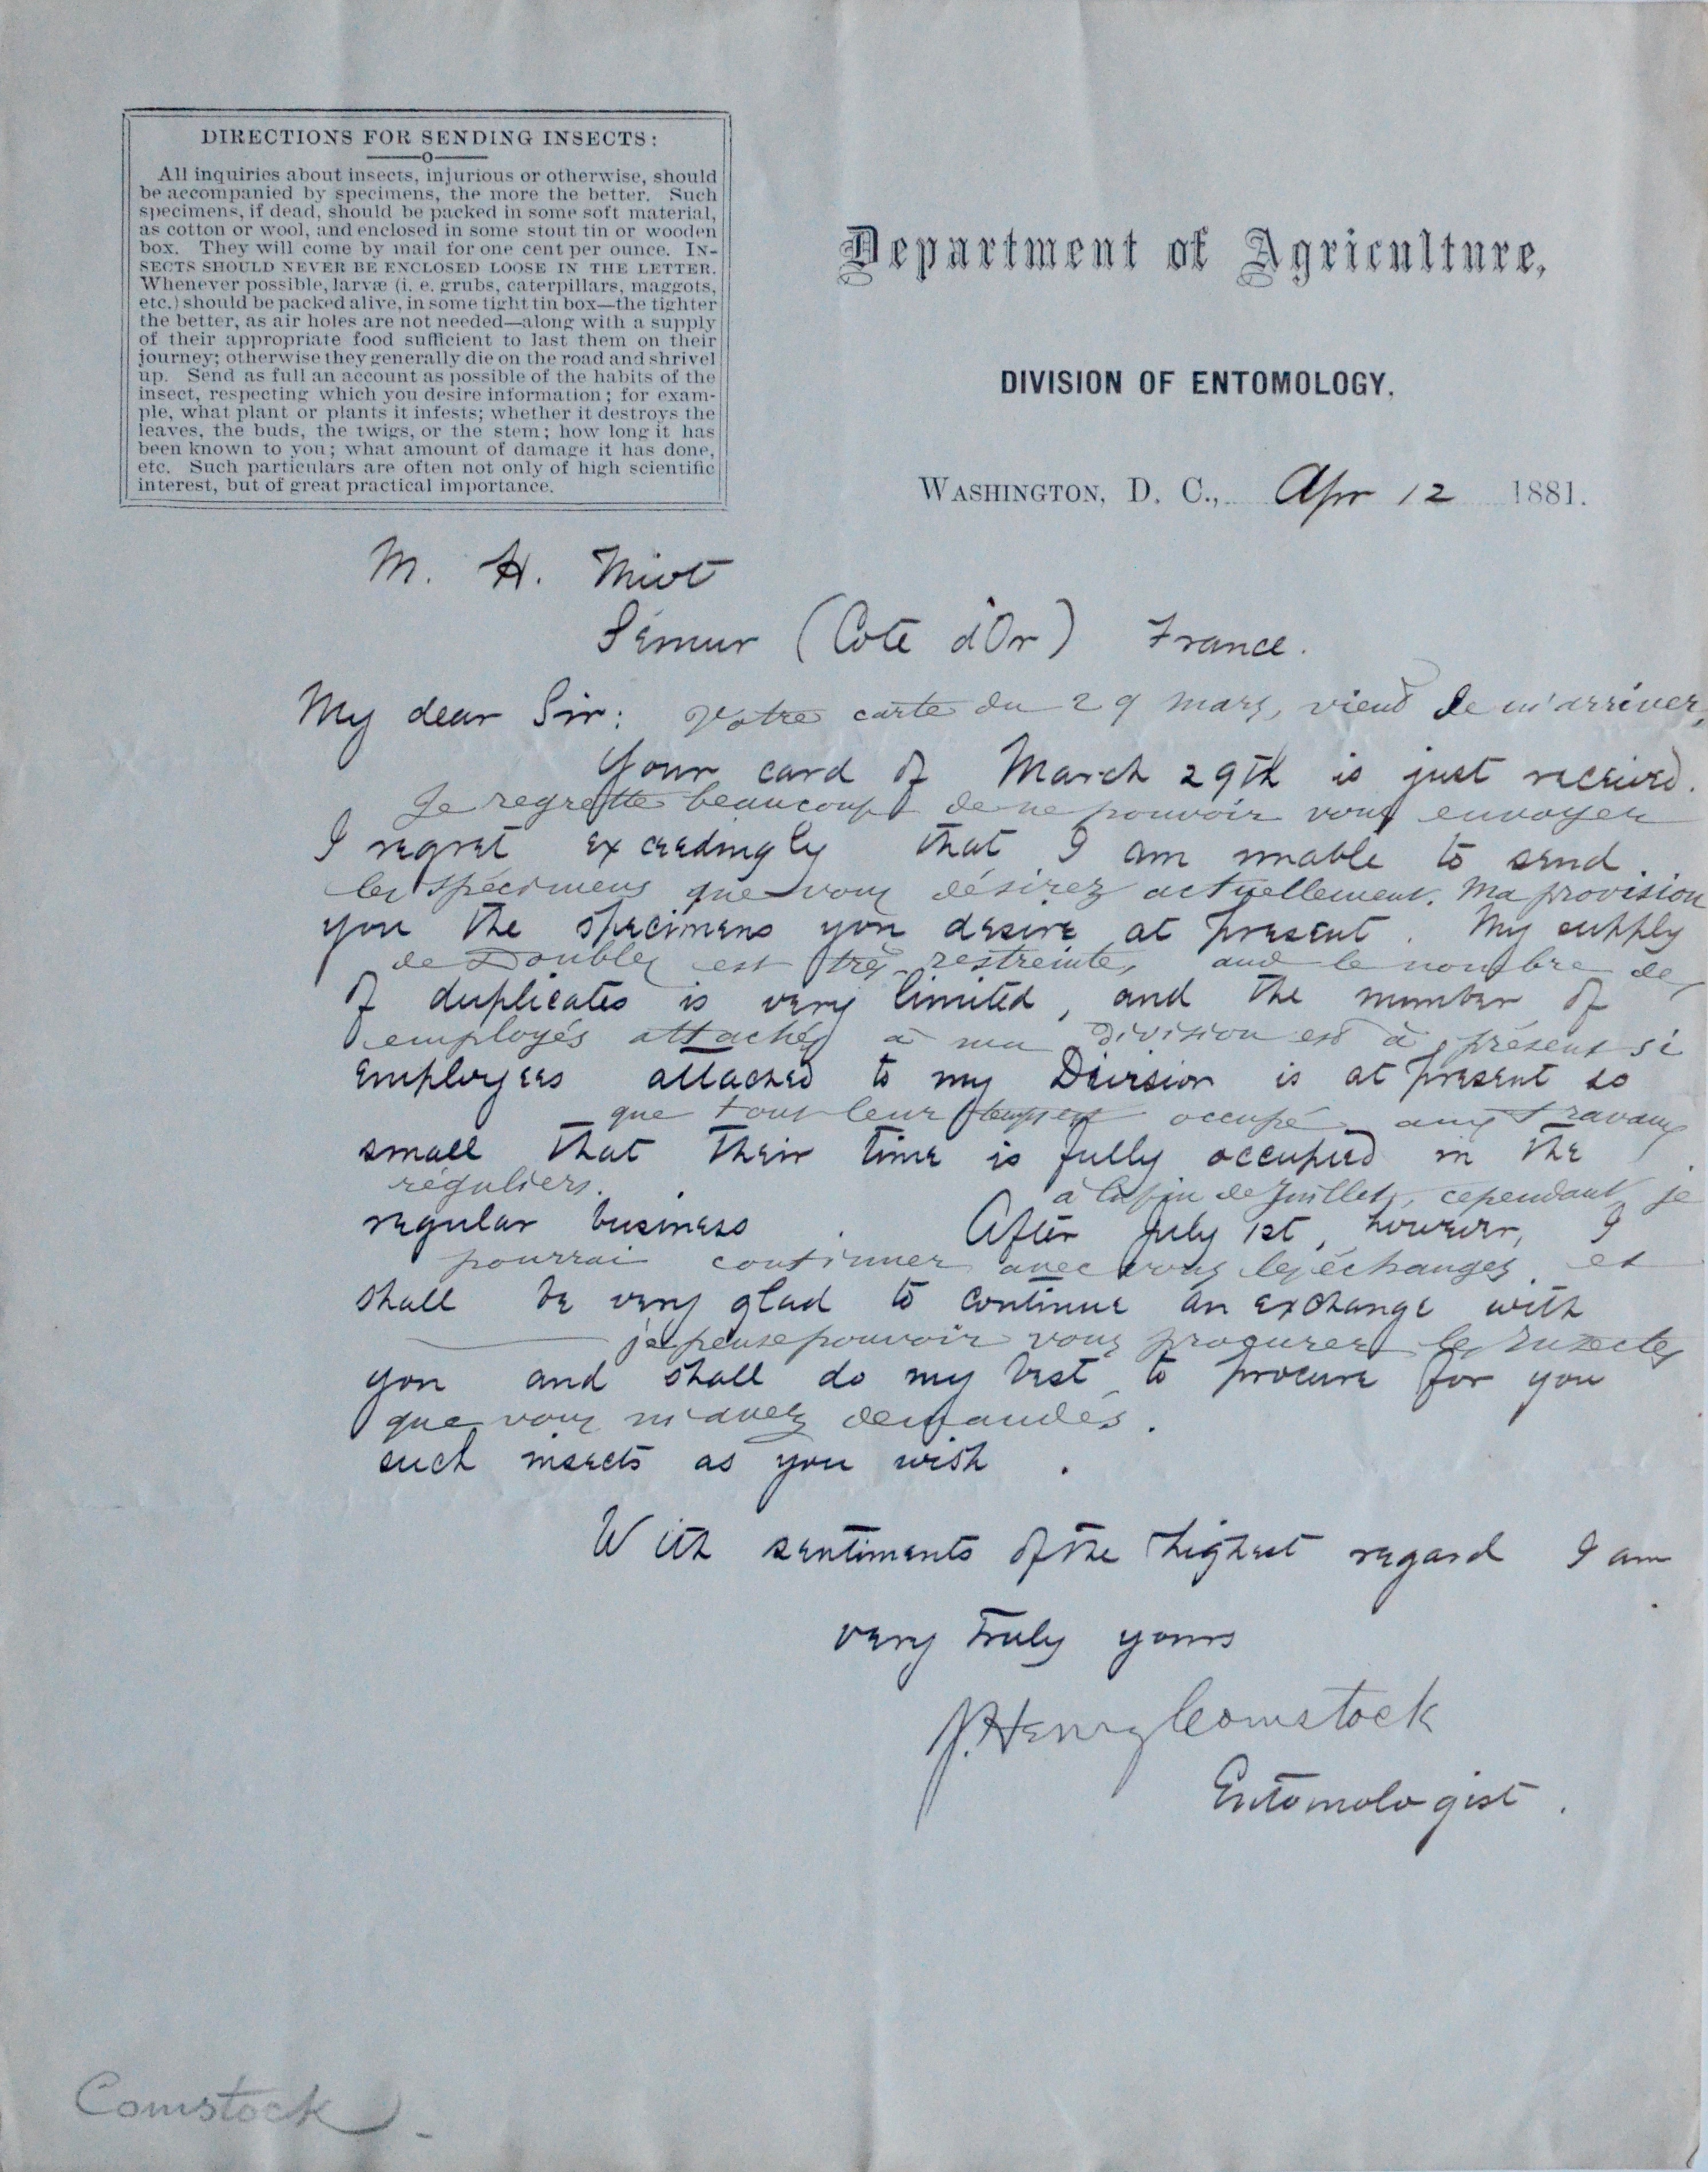 DIRECTIONS FOR SENDING INSECTS:
All inquiries about insects, injurious or otherwise, should
be accompanied by specimens, the more the better. Such
specimens, if dead, should be packed in some soft material,
as cotton or wool, and enclosed in some stout tin or wooden
box. They will come by mail for one cent per ounce. IN-
SECTS SHOULD NEVER BE ENCLOSED LOOSE IN THE LETTER.
Whenever possible, larvæ (i. e. grubs, caterpillars, maggots,
etc.) should be packed alive, in some tight tin box—the tighter
the better, as air holes are not needed—along with a supply
of their appropriate food sufficient to last them on their
journey; otherwise they generally die on the road and shrivel
up. Send as full an account as possible of the habits of the
insect, respecting which you desire information; for exam-
ple, what plant or plants it infests; whether it destroys the
leaves, the buds, the twigs, or the stem; how long it has
been known to you; what amount of damage it has done,
etc. Such particulars are often not only of high scientific
interest, but of great practical importance.
Department of Agriculture,
DIVISION OF ENTOMOLOGY.
WASHINGTON, D. C., Apr 12 1881.
M. H. Miot
Sémur (Cote d'Or) France.
My dear Sir: Votre carte du 29 mars, vient de m'arriver,
Your card of March 29th is just received.
Je regrette beaucoup de ne pouvoir vous envoyer
I regret exceedingly that I am unable to send
les spécimens que vous désirez actuellement. Ma provision
you the specimens you desire at present. My supply
de Doubles est très restreinte, and le nombre des
of duplicates is very limited, and the number of
employés attachés à ma Division est à présent si
employees attached to my Division is at present so
que tout leur temps est occupé aux travaux
small that their time is fully occupied in the
réguliers. à la fin de Juillet, cependant, je
regular business. After July 1st, however, I
pourrai continuer avec vous les échanges et
shall be very glad to continue an exchange with
je pense pouvoir vous procurer les Insectes
you and shall do my best to procure for you
que vous m'avez demandés.
such insects as you wish.
With sentiments of the highest regard I am
very truly yours
J. Henry Comstock
Entomologist.
Comstock